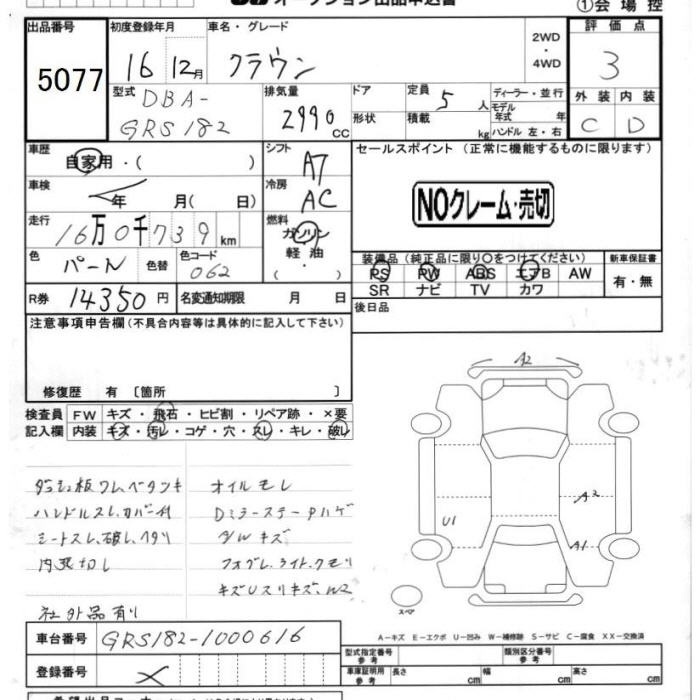 ①会場控
出品番号
5077
初度登録年月
16 12月
車名・グレード
クラウン
2WD
・
4WD
評価点
3
型式
DBA-
GRS182
排気量
2990
CC
ドア
形状
定員 5 人
積載 kg
ディーラー・並行
モデル
年式 年
ハンドル 左・右
外装 内装
C D
車歴
自家用・( )
シフト
A7
セールスポイント (正常に機能するものに限ります)
NOクレーム・売切
車検
年 月( 日)
冷房
AC
走行
16万0千739km
燃料
ガソリン
軽油
( ・ )
色
パール
色替
色コード
062
装備品(純正品に限り○をつけてください)
PS PW ABS エアB AW
SR ナビ TV カワ
新車保証書
有・無
R券 14350円
名変通知期限 月 日
後日品
注意事項申告欄(不具合内容等は具体的に記入して下さい)
修復歴 有 〔箇所 〕
検査員 FW キズ・飛石・ヒビ割・リペア跡・×要
記入欄 内装 キズ・汚レ・コゲ・穴・スレ・キレ・破レ
オイルモレ
ハンドルスレ、カバー付
Dミラーステー
シートスレ、破レ、ヘタリ
キズ
内張切レ
フォグレ、ライト、クモリ
社外品有り
A2
A2
U1
A1
スペア
A-キズ E-エクボ U-凹み W-補修跡 S-サビ C-腐食 XX-交換済
車台番号 GRS182-1000616
登録番号
型式指定番号
参考
類別区分番号
参考
車庫証明用
参考
長さ cm
幅 cm
高さ cm